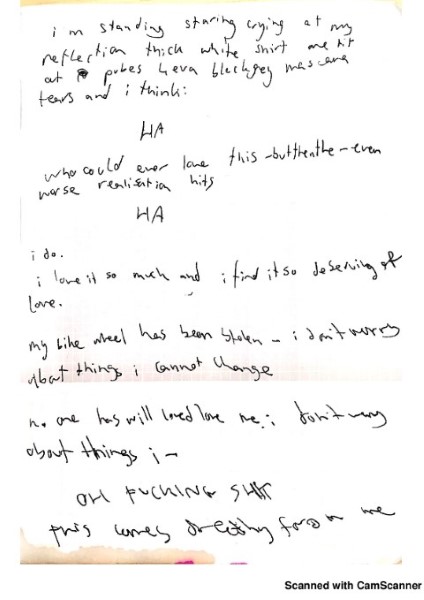 i m standing staring crying at my
reflection thick white shirt one tit
out pubes 4eva blackgrey mascara
tears and i think:
HA
who could ever love this -butthenthe- even
worse realisation hits
HA
i do.
i love it so much and i find it so deserving of
love.
my bike wheel has been stolen - i don't worry
about things i cannot change
no one has will loved love me; i don't worry
about things i -
OH FUCKING SHIT
this comes
me
Scanned with CamScanner